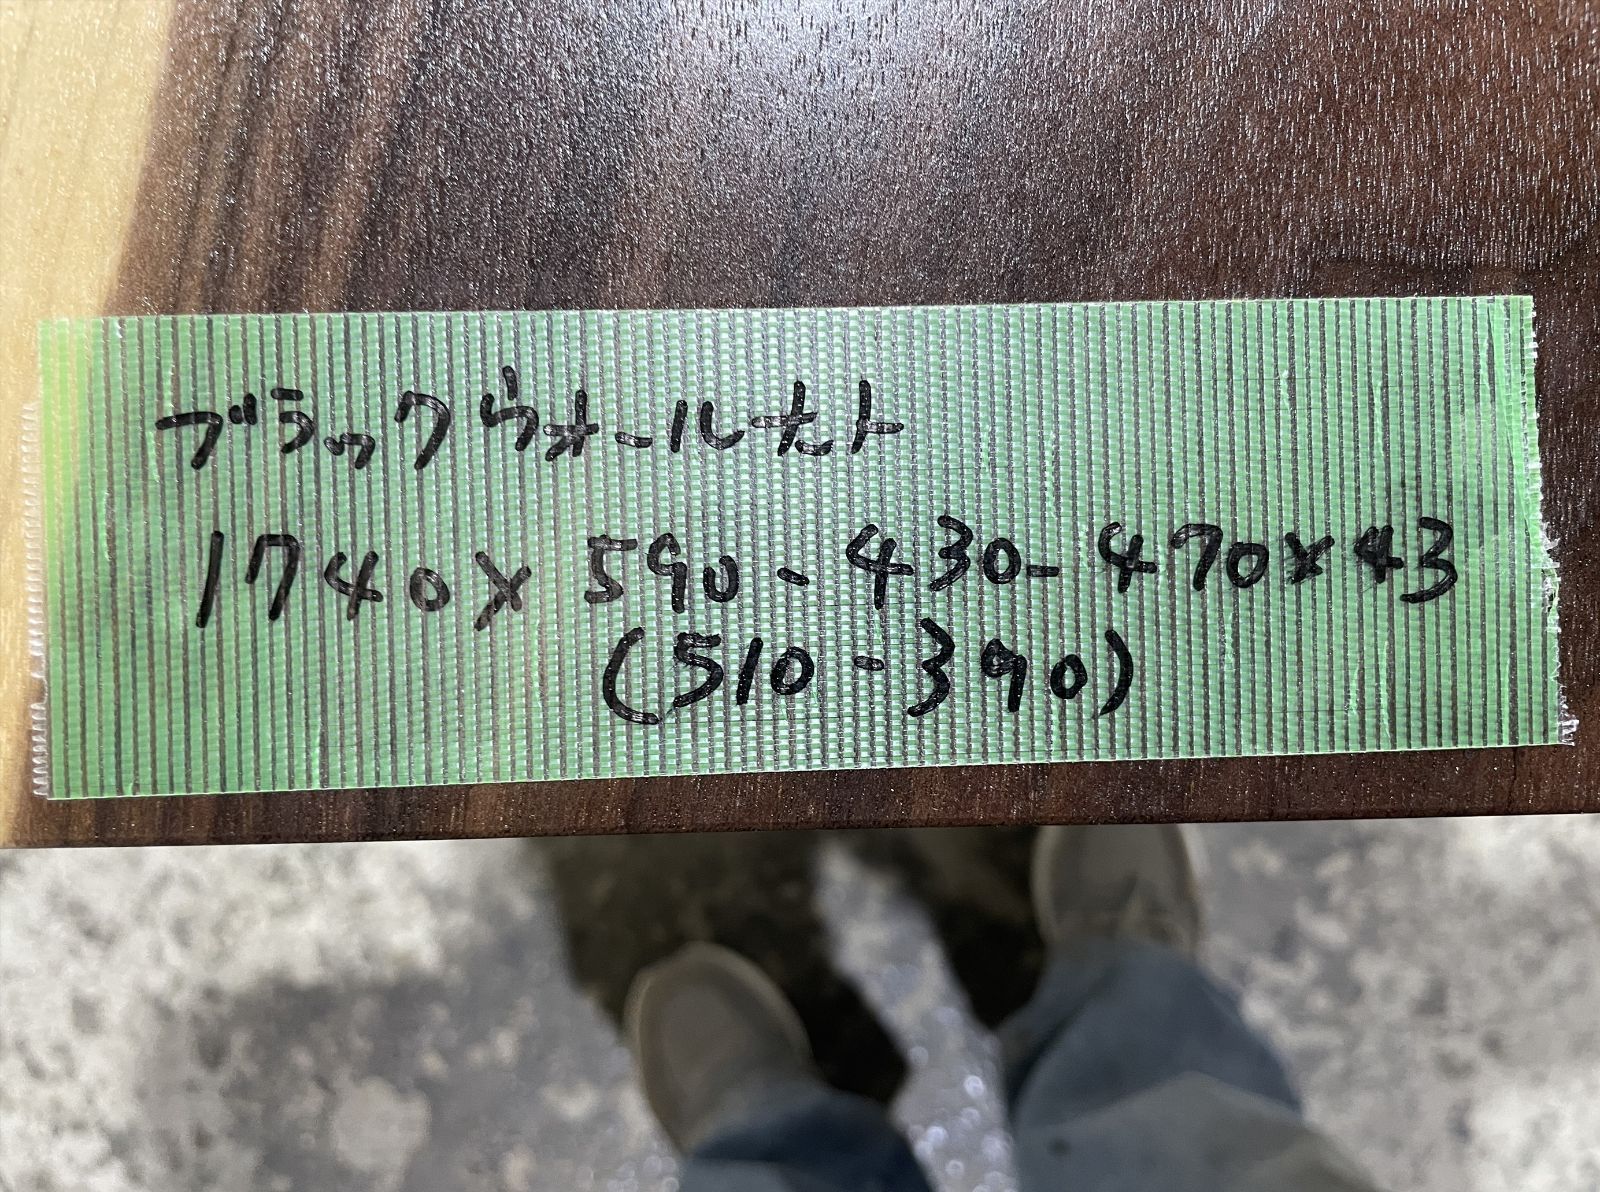 ブラックウォールナット
1740×590-430-470×43
(510-390)